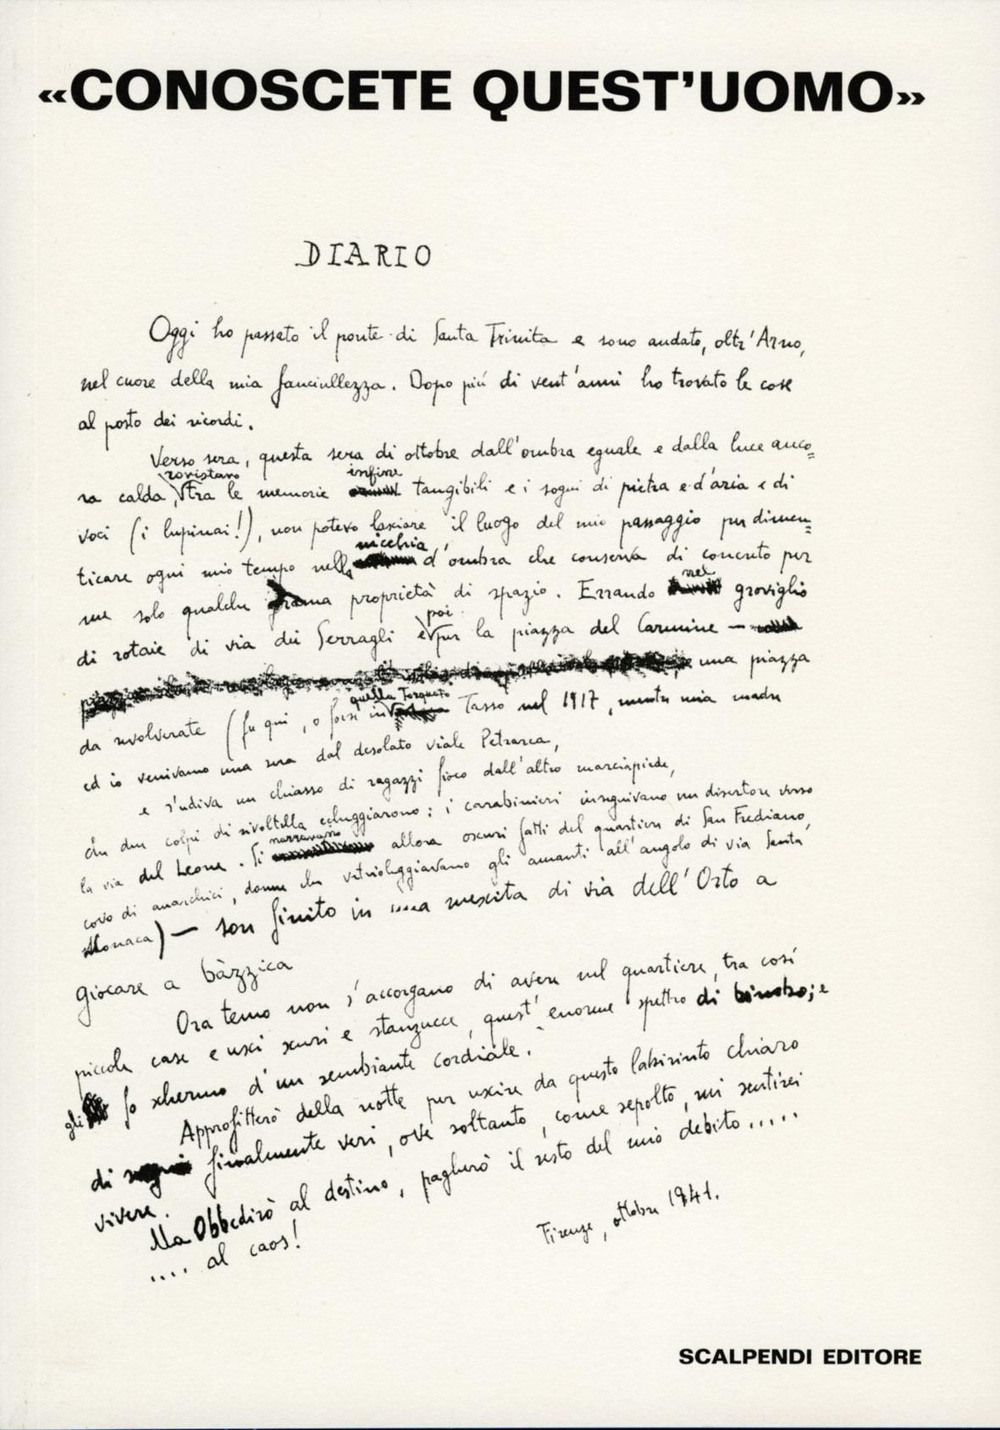 «CONOSCETE QUEST'UOMO»
DIARIO
Oggi ho passato il ponte di Santa Trinita e sono andato, oltr'Arno,
nel cuore della mia fanciullezza. Dopo più di vent'anni ho trovato le cose
al posto dei ricordi.
Verso sera, questa sera di ottobre dall'ombra eguale e dalla luce anco=
rovistavo infine
ra calda, tra le memorie tangibili e i sogni di pietra e d'aria e di
voci (i lupinai!), non potevo lasciare il luogo del mio passaggio per dimen=
nicchia
ticare ogni mio tempo nella d'ombra che conserva di concreto per
nel
me solo qualche proprietà di spazio. Errando groviglio
poi
di rotaie di via dei Serragli e per la piazza del Carmine —
una piazza
quella Torquato
da revolverate (fu qui, o forse in Tasso nel 1917, mentre mia madre
ed io venivamo una sera dal desolato viale Petrarca,
e s'udiva un chiasso di ragazzi fioco dall'altro marciapiede,
che due colpi di rivoltella echeggiarono: i carabinieri inseguivano un disertore verso
narravano
la via del Leone. Si allora oscuri fatti del quartiere di San Frediano,
covo di anarchici, donne che vetrioleggiavano gli amanti all'angolo di via Santa
Monaca) — son finito in una mescita di via dell'Orto a
giocare a bàzzica
Ora temo non s'accorgano di avere nel quartiere, tra così
piccole case e usci scuri e stanzucce, quest'enorme spettro di bimbo; e
gli fo schermo d'un sembiante cordiale.
Approfitterò della notte per uscire da questo labirinto chiaro
di finalmente veri, ove soltanto, come sepolto, mi sentirei
vivere.
Ma Obbedirò al destino, pagherò il resto del mio debito.....
.... al caos!
Firenze, ottobre 1941.
SCALPENDI EDITORE